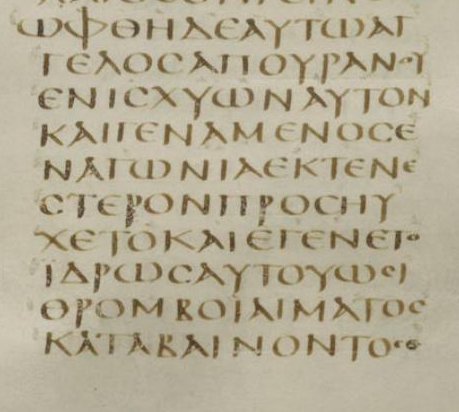 ΩΦΘΗΔΕΑΥΤΩΑΓ
ΓΕΛΟΣΑΠΟΥΡΑΝΟΥ
ΕΝΙΣΧΥΩΝΑΥΤΟΝ
ΚΑΙΓΕΝΑΜΕΝΟΣΕ
ΝΑΓΩΝΙΑΕΚΤΕΝΕ
ΣΤΕΡΟΝΠΡΟΣΗΥ
ΧΕΤΟΚΑΙΕΓΕΝΕΤΟ
ΪΔΡΩΣΑΥΤΟΥΩΣΙ
ΘΡΟΜΒΟΙΑΙΜΑΤΟΣ
ΚΑΤΑΒΑΙΝΟΝΤΟΣ